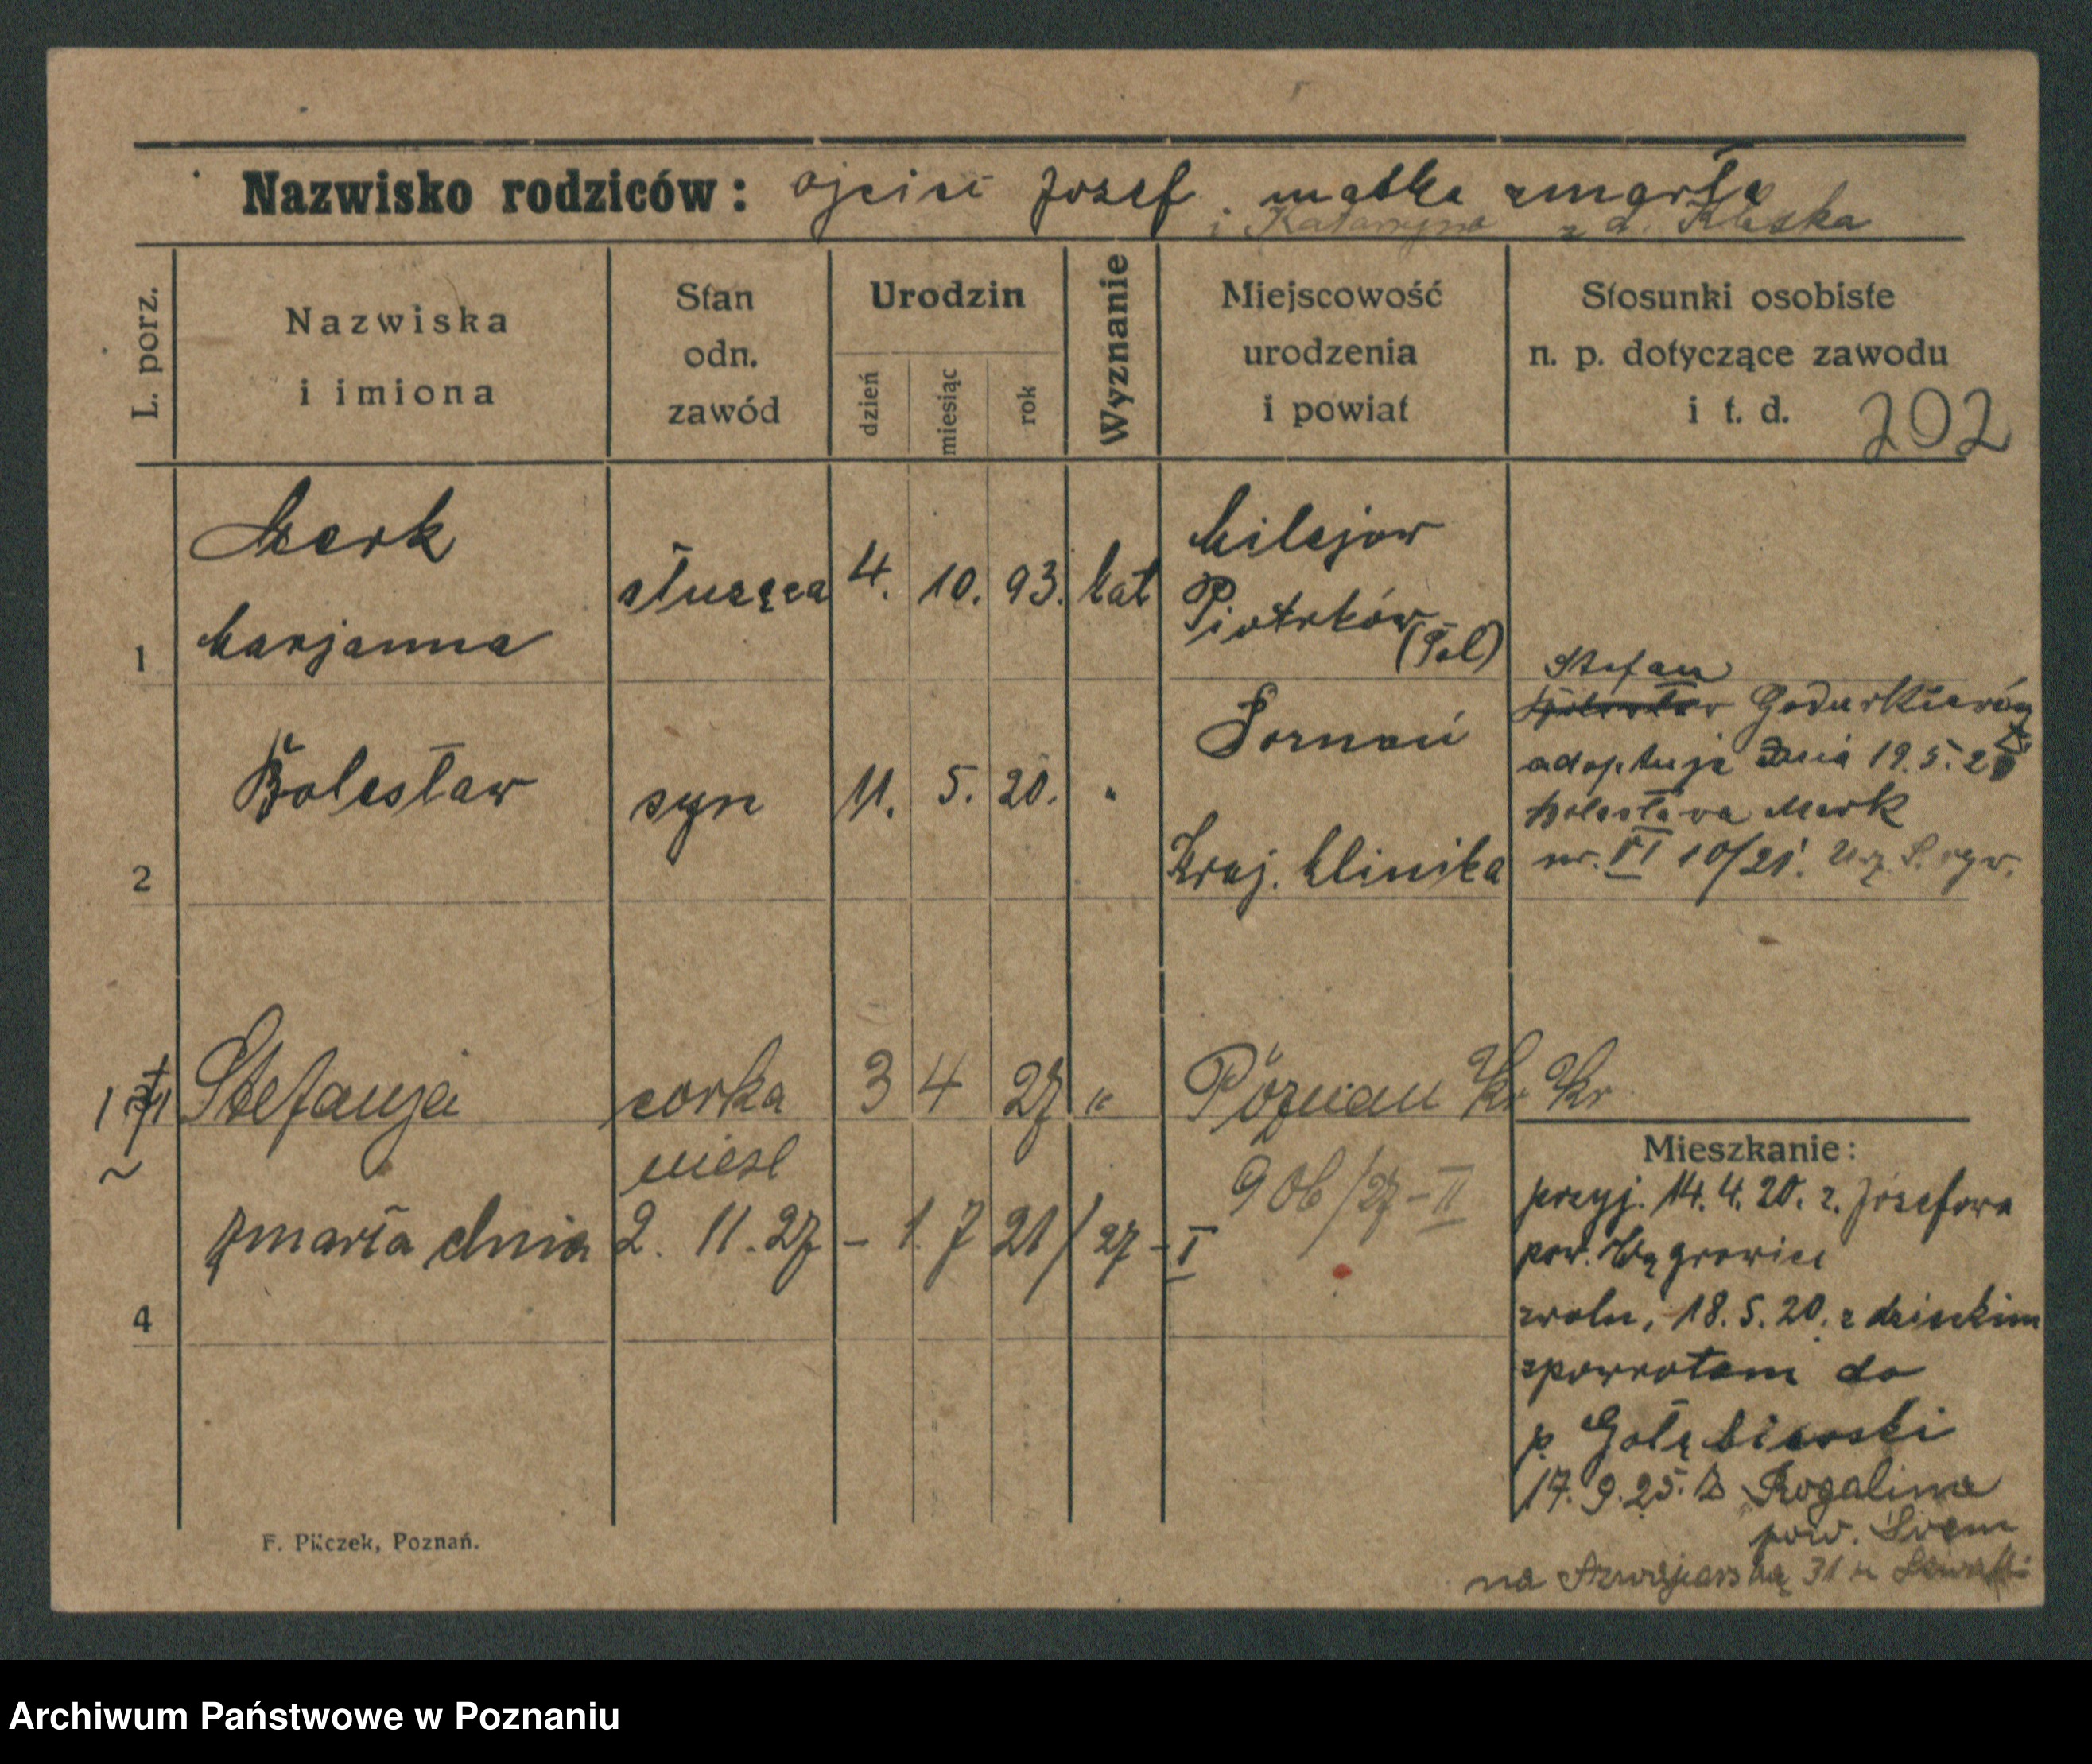 Nazwisko rodziców: ojciec Jozef matka zmarła
i Katarzyna z d. Kleska
L. porz.
Nazwiska
i imiona
Stan
odn.
zawód
Urodzin
dzień
miesiąc
rok
Wyznanie
Miejscowość
urodzenia
i powiat
Stosunki osobiste
n. p. dotyczące zawodu
i t. d.
202
1
Merk
Marjanna
służąca
4. 10. 93. kat
Milejow
Piotrków
(Pol)
2
Bolesław
syn
11. 5. 20. "
Poznań
Kraj. klinika
Stefan
adoptuje dnia 19.5.2
Bolesława Merk
nr. VI 10/21.
Stefanja
corka
niesl
3 4 27 "
Poznan Kr Kr
906/27-II
zmarła dnia 2. 11. 27 - 1.7 21/27-I
4
Mieszkanie:
przyj. 14.4.20. z. Józefowa
pow. Wągrowiec
zwoln. 18.5.20. z dzieckiem
zpowrotem do
p. Gołębiewski
17.9.25. z Rogalina
pow. Srem
na 31
F. Pilczek, Poznań.
Archiwum Państwowe w Poznaniu